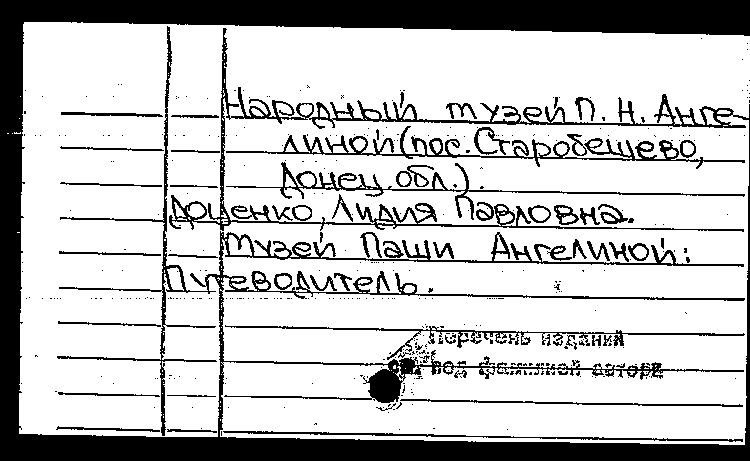 Народный музей П. Н. Анге-
линой (пос. Старобешево,
Донец. обл.).
Доценко, Лидия Павловна.
Музей Паши Ангелиной:
Путеводитель.
Перечень изданий
см. под фамилией автора